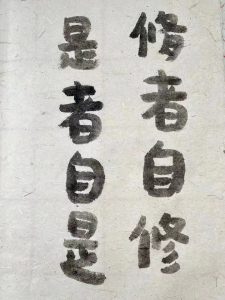 修者自修
是者自是